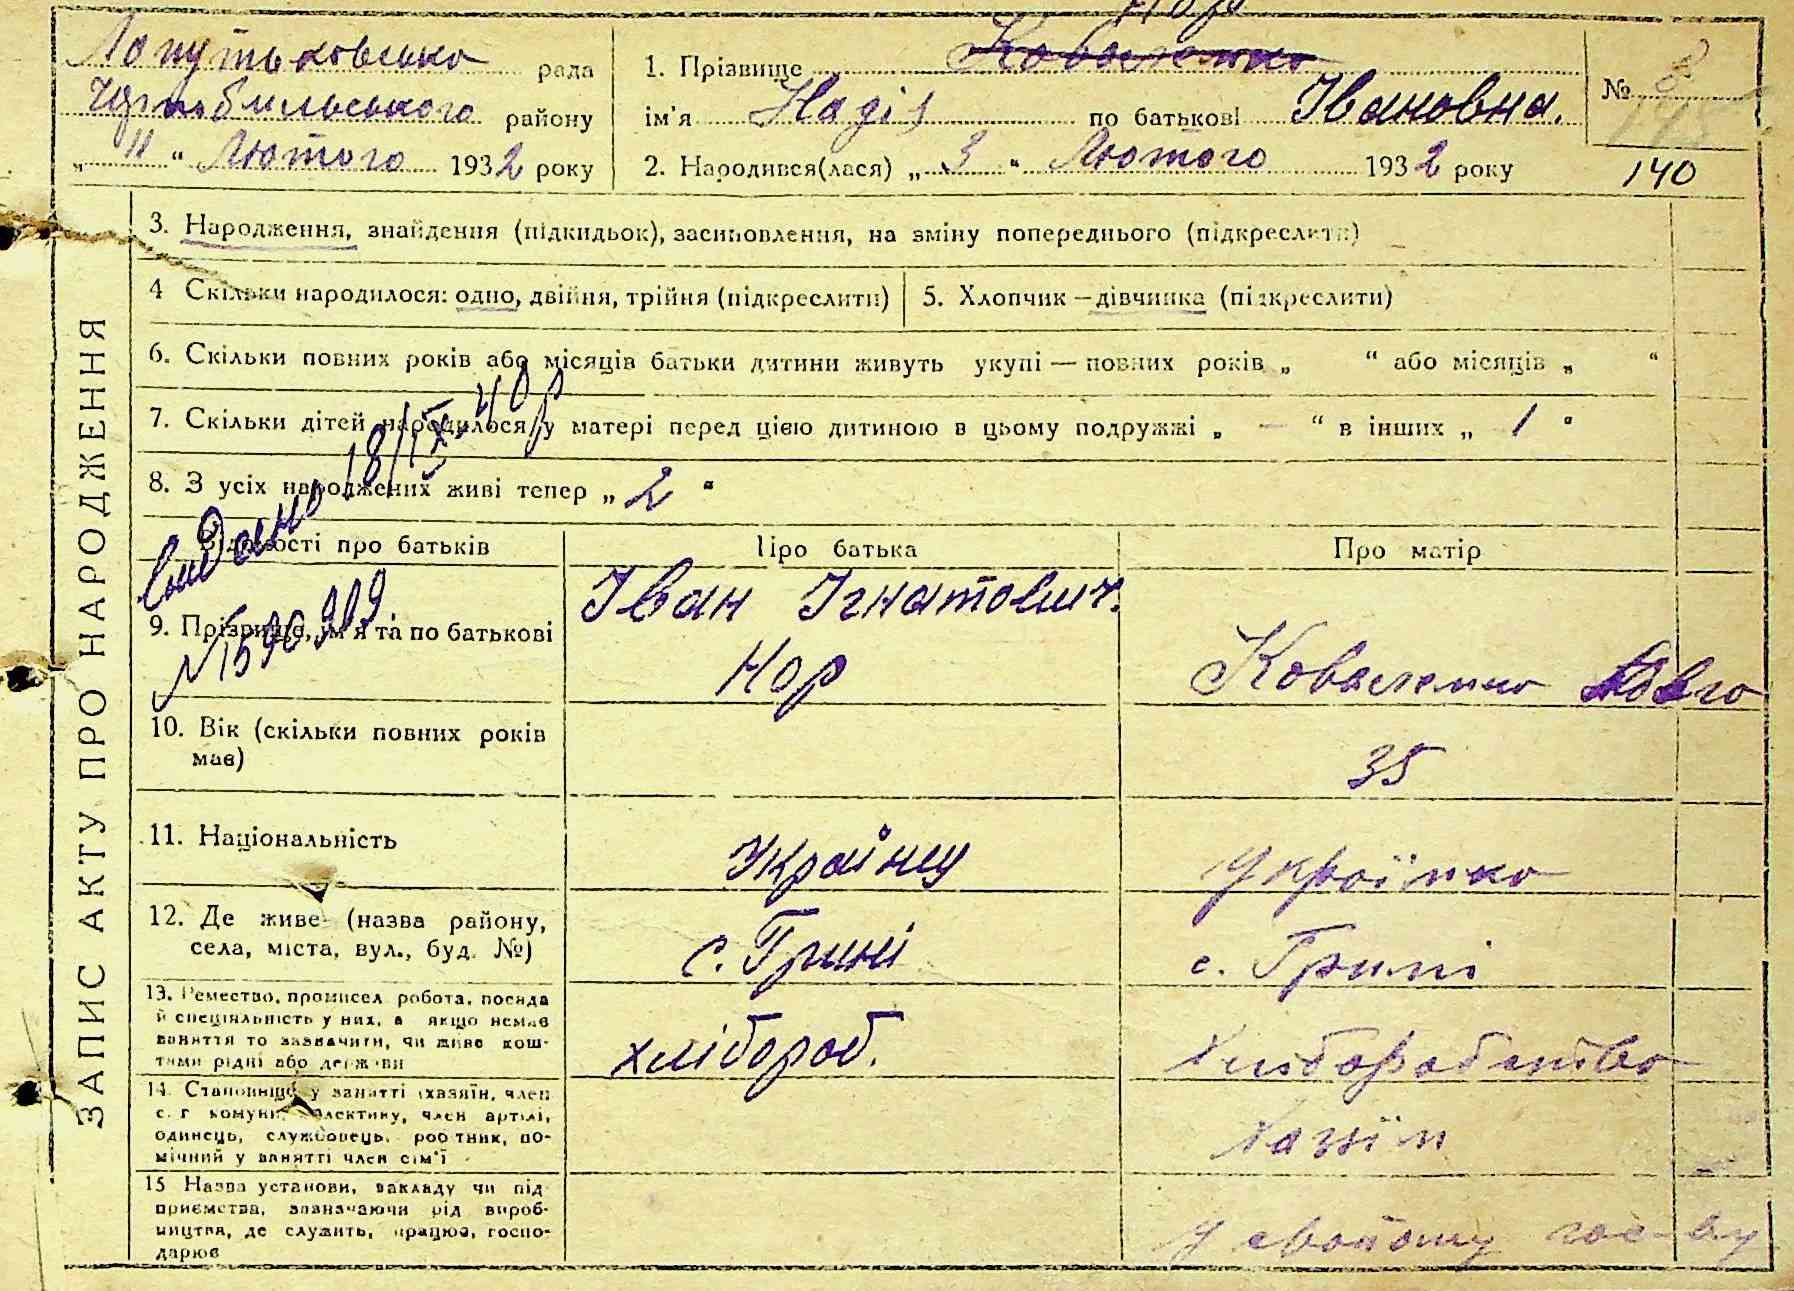 Нор
Лопутьковсько рада
Чорнобильського району
„ 11 “ Лютого 1932 року
1. Прізвище Коваленко
ім'я Надія по батькові Івановна.
2. Народився(лася) „ 3 “ Лютого 1932 року
№ 8
140
ЗАПИС АКТУ ПРО НАРОДЖЕННЯ
3. Народження, знайдення (підкидьок), засиновлення, на зміну попереднього (підкреслити)
4 Скільки народилося: одно, двійня, трійня (підкреслити)
5. Хлопчик — дівчинка (підкреслити)
6. Скільки повних років або місяців батьки дитини живуть укупі — повних років „ “ або місяців „ “
7. Скільки дітей народилося у матері перед цією дитиною в цьому подружжі „ — “ в інших „ 1 “
8. З усіх народжених живі тепер „ 2 “
видано 18/IX-40р
№1590909.
Відомості про батьків
Про батька
Про матір
9. Прізвище, ім'я та по батькові
Іван Ігнатович.
Нор
Коваленко
10. Вік (скільки повних років
має)
35
11. Національність
Українец
Українко
12. Де живе (назва району,
села, міста, вул., буд. №)
с. Грині
с. Грині
13. Ремество, промисел робота, посада
й спеціяльність у них, а якщо немає
заняття то зазначити, чи живе кош-
тами рідні або держави
хлібороб.
Хліборобство
14. Становище у занятті (хазяїн, член
с. г комуни, колективу, член артілі,
одинець, службовець, робітник, по-
мічний у занятті член сім'ї
Хазяїн
15 Назва установи, закладу чи під
приємства, зазначаючи рід вироб-
ництва, де служить, працює, госпо-
дарює
У своїому гос-ву